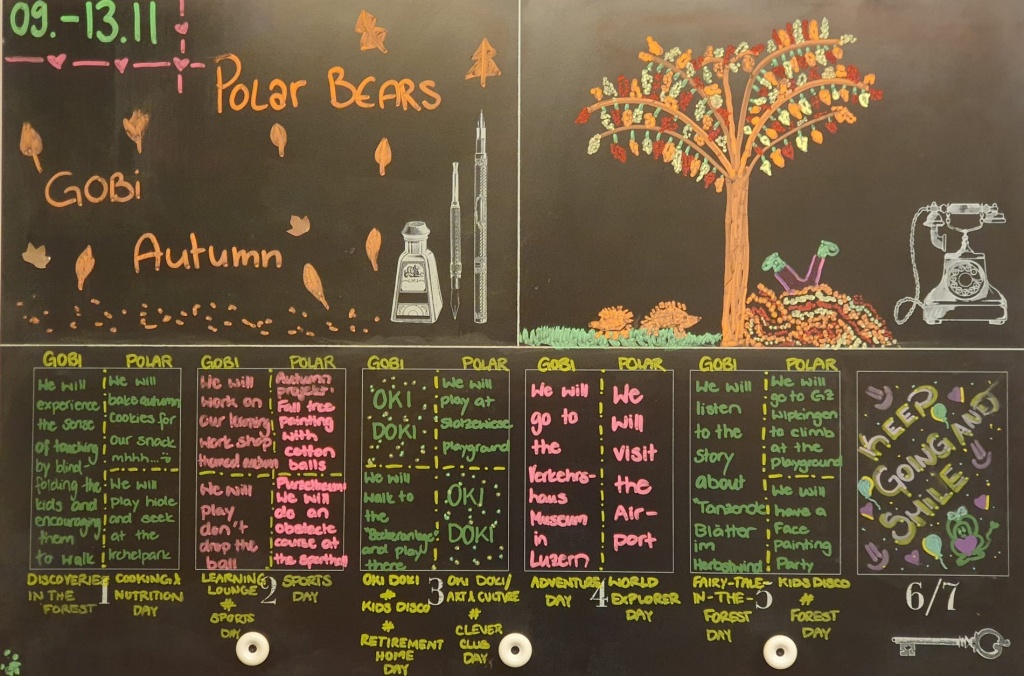 09.-13.11
Polar BEARS
GOBi
Autumn
GOBI
POLAR
We will
experience
the sense
of touching
by blind-
folding the
kids and
encouraging
them
to walk
We will
bake autumn
cookies for
our snack
mhhh...
We will
play hide
and seek
at the
Irchelpark
DISCOVERIES
IN THE
FOREST
1
COOKING &
NUTRITION
DAY
GOBI
POLAR
We will
work on
our learning
work shop
themed autumn
We will
play
don't
drop the
ball
Autumn
project:
Fall tree
painting
with
cotton
balls
We will
do an
obstacle
course at
the sporthall
LEARNING
LOUNGE
#
SPORTS
DAY
2
SPORTS
DAY
GOBI
POLAR
OKI
DOKI
We will
walk to
the
and play
there
We will
play at
playground
OKI
DOKI
OKI DOKI
#
KIDS DISCO
#
RETIREMENT
HOME
DAY
3
OKI DOKI/
ART & CULTURE
#
CLEVER
CLUB
DAY
GOBI
POLAR
We will
go to
the
Verkehrs-
haus
Museum
in
Luzern
We
will
visit
the
Air-
port
ADVENTURE
DAY
4
WORLD
EXPLORER
DAY
GOBI
POLAR
We will
listen
to the
story
about
"Tanzende
Blätter
im
Herbstwind
We will
go to GZ
Wipkingen
to climb
at the
playground
We will
have a
Face
Painting
Party
FAIRY-TALE-
IN-THE-
FOREST
DAY
5
KIDS DISCO
#
FOREST
DAY
KEEP
GOING AND
SMILE
6/7